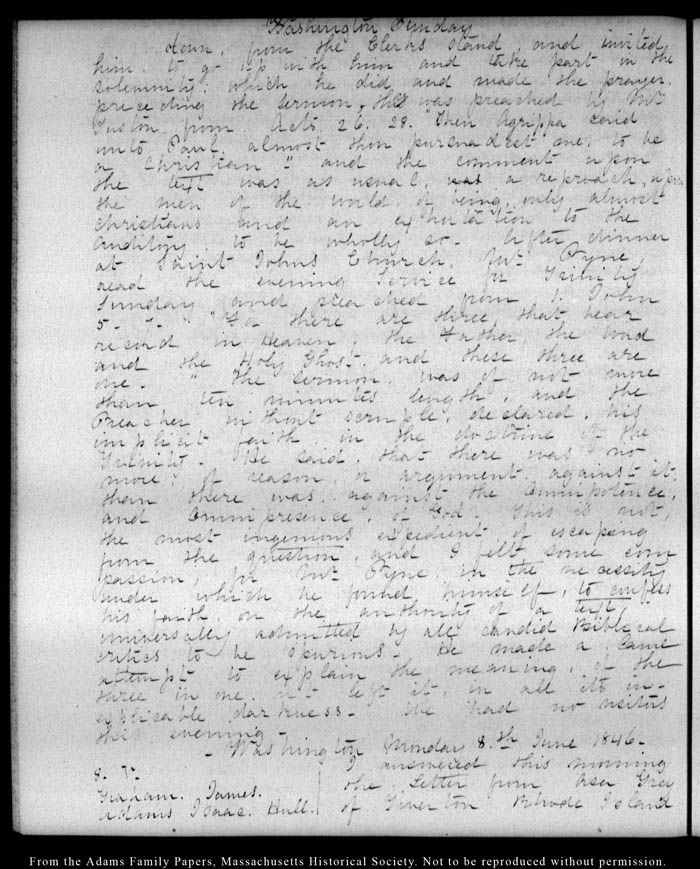 Washington Sunday
down, from the Clerks stand, and invited
him to go up with him and take part in the
solemnity; which he did and made the prayer
preceding the sermon, that was preached by Mr
Tuston from Acts. 26. 28. Then Agrippa said
unto Paul, almost thou persuadest me, to be
a Christian" and the comment upon
the text was as usual, a reproach, upon
the men of the world, of being, only almost
christians and an exhortation to the
auditory to be wholly so. After dinner
at Saint Johns Church, Mr. Pyne,
read the evening service for Trinity
Sunday and preached from 1. John
5. 7. "For there are three, that bear
record in Heaven, the Father, the word
and the Holy Ghost, and these three are
one." The sermon, was of not more
than ten minutes length, and the
Preacher without scruple, declared, his
implicit faith in the doctrine of the
Trinity. He said, that there was no
more of reason, or argument against it,
than there was, against the Omnipotence,
and Omnipresence, of God. This is not,
the most ingenious expedient of escaping
from the question, and I felt some com
passion, for Mr Pyne, in the necessity
under which he found himself, to confess
his faith, on the authority of a text,
universally admitted by all candid Biblical
critics to be spurious. He made a lame
attempt to explain the meaning, of the
three in one. left it, in all its in-
explicable darkness. We had no visitors
this evening
Washington Monday 8.th June 1846.
8. V.
I answered this morning
Graham. James. the Letter from Asa Gray
Adams Isaac. Hull. of Tiverton Rhode Island
From the Adams Family Papers, Massachusetts Historical Society. Not to be reproduced without permission.